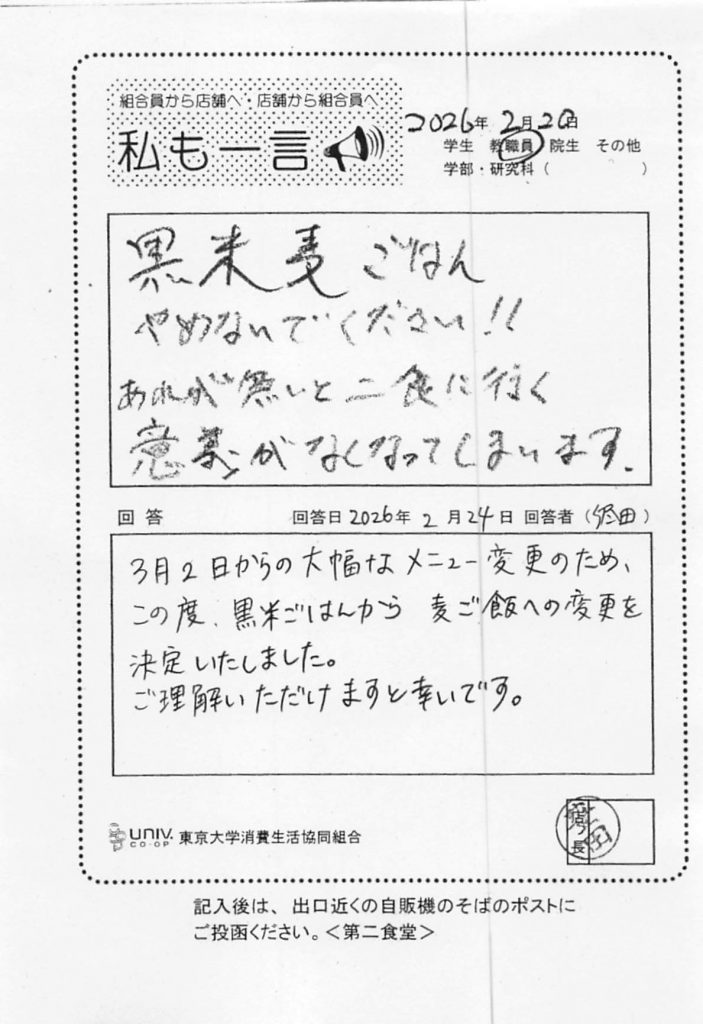 組合員から店舗へ・店舗から組合員へ
私も一言
2026年 2月 20日
学生 教職員 院生 その他
学部・研究科（ ）
黒米麦ごはん
やめないでください!!
あれが無いと二食に行く
意義がなくなってしまいます.
回答 回答日 2026年 2月 24日 回答者（ 田）
3月2日からの大幅なメニュー変更のため、
この度、黒米ごはんから 麦ご飯への変更を
決定いたしました。
ご理解いただけますと幸いです。
店長
UNIV. 東京大学消費生活協同組合
CO-OP
記入後は、出口近くの自販機のそばのポストに
ご投函ください。＜第二食堂＞